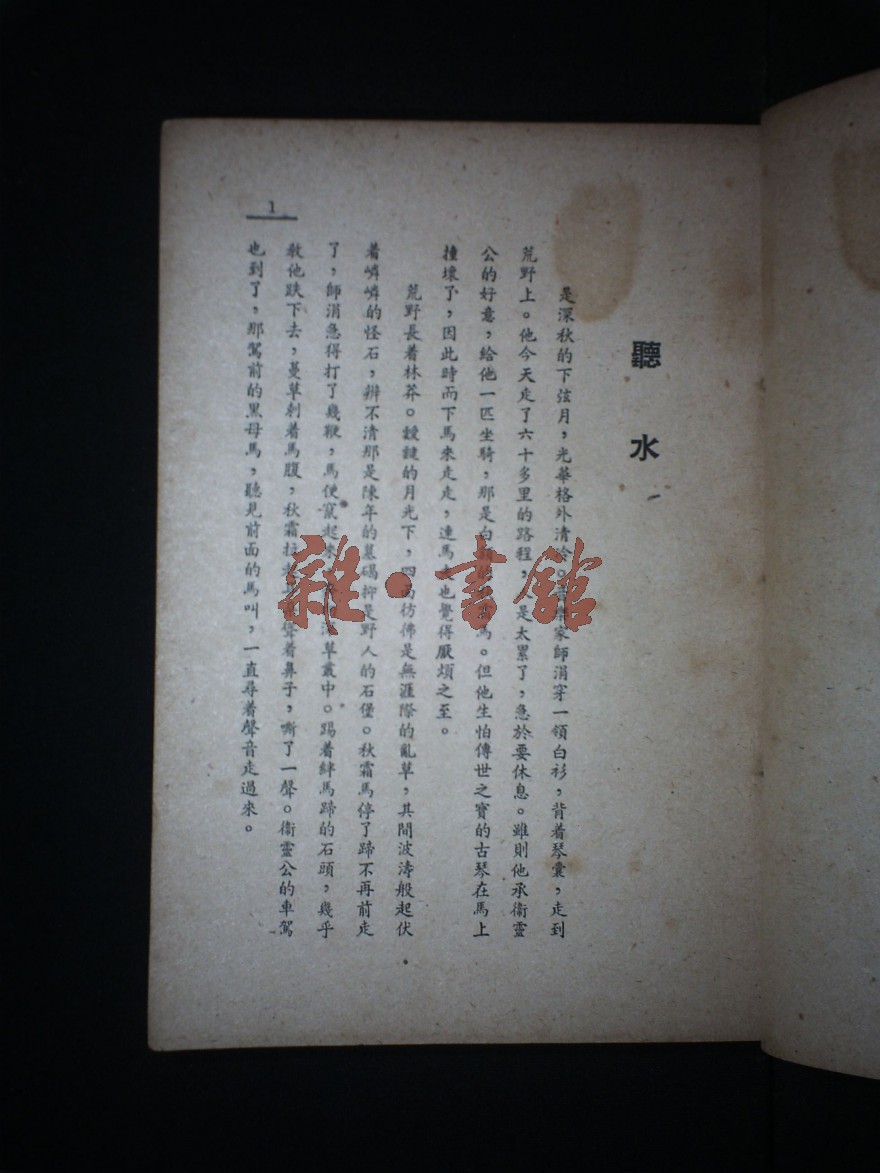 聽水
是深秋的下弦月，光華格外清冷，音樂家師涓穿一領白衫，背着琴囊，走到
荒野上。他今天走了六十多里的路程，是太累了，急於要休息。雖則他承衞靈
公的好意，給他一匹坐騎，那是白額的馬。但他生怕傳世之寶的古琴在馬上
撞壞了，因此時而下馬來走走，連馬夫也覺得厭煩之至。
荒野長着林莽。靉靆的月光下，四面彷彿是無涯際的亂草，其間波濤般起伏
着嶙嶙的怪石，辨不清那是陳年的墓碣抑是野人的石堡。秋霜馬停了蹄不再前走
了，師涓急得打了幾鞭，馬便竄起來草叢中。踢着絆馬蹄的石頭，幾乎
敎他跌下去，蔓草刺着馬腹，秋霜聳着鼻子，嘶了一聲。衞靈公的車駕
也到了，那駕前的黑母馬，聽見前面的馬叫，一直尋着聲音走過來。
1
雜·書館